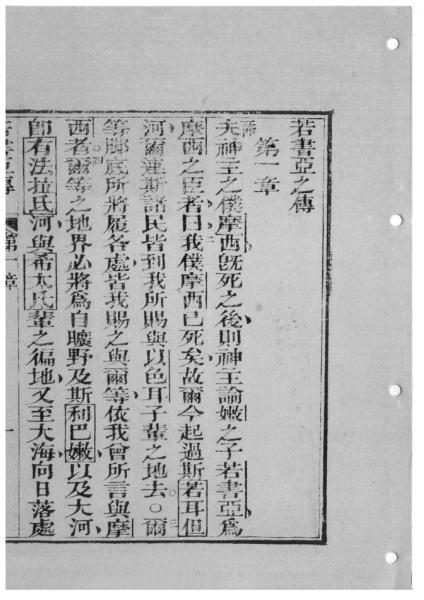 若書亞之傳
第一章
夫神主之僕摩西既死之後則神主諭嫩之子若書亞為
摩西之臣者曰我僕摩西已死矣故爾今起過斯若耳但
河爾連斯諸民皆到我所賜與以色耳子輩之地去○爾
等腳底所將履各處皆我賜之與爾等依我曾所言與摩
西者○爾等之地界必將為自曠野及斯利巴嫩以及大河
即有法拉氐河與希太氐輩之徧地又至大海向日落處
第一章
一